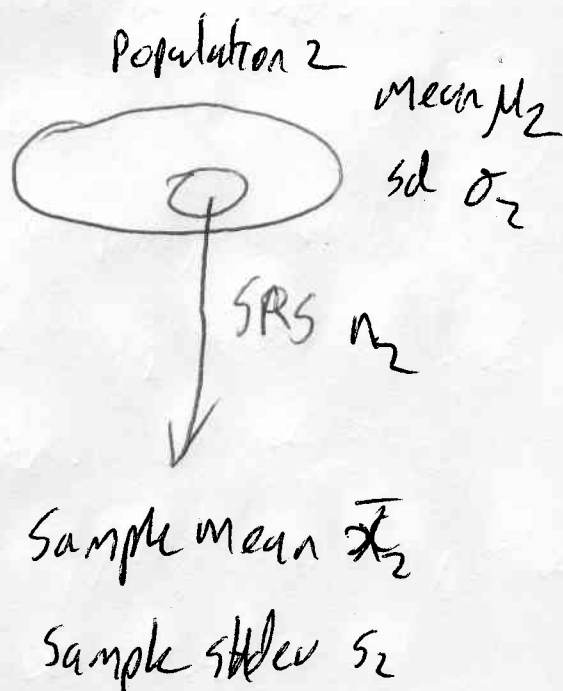 Population 2
mean μ₂
sd σ₂
SRS n₂
Sample mean x̄₂
Sample stdev s₂